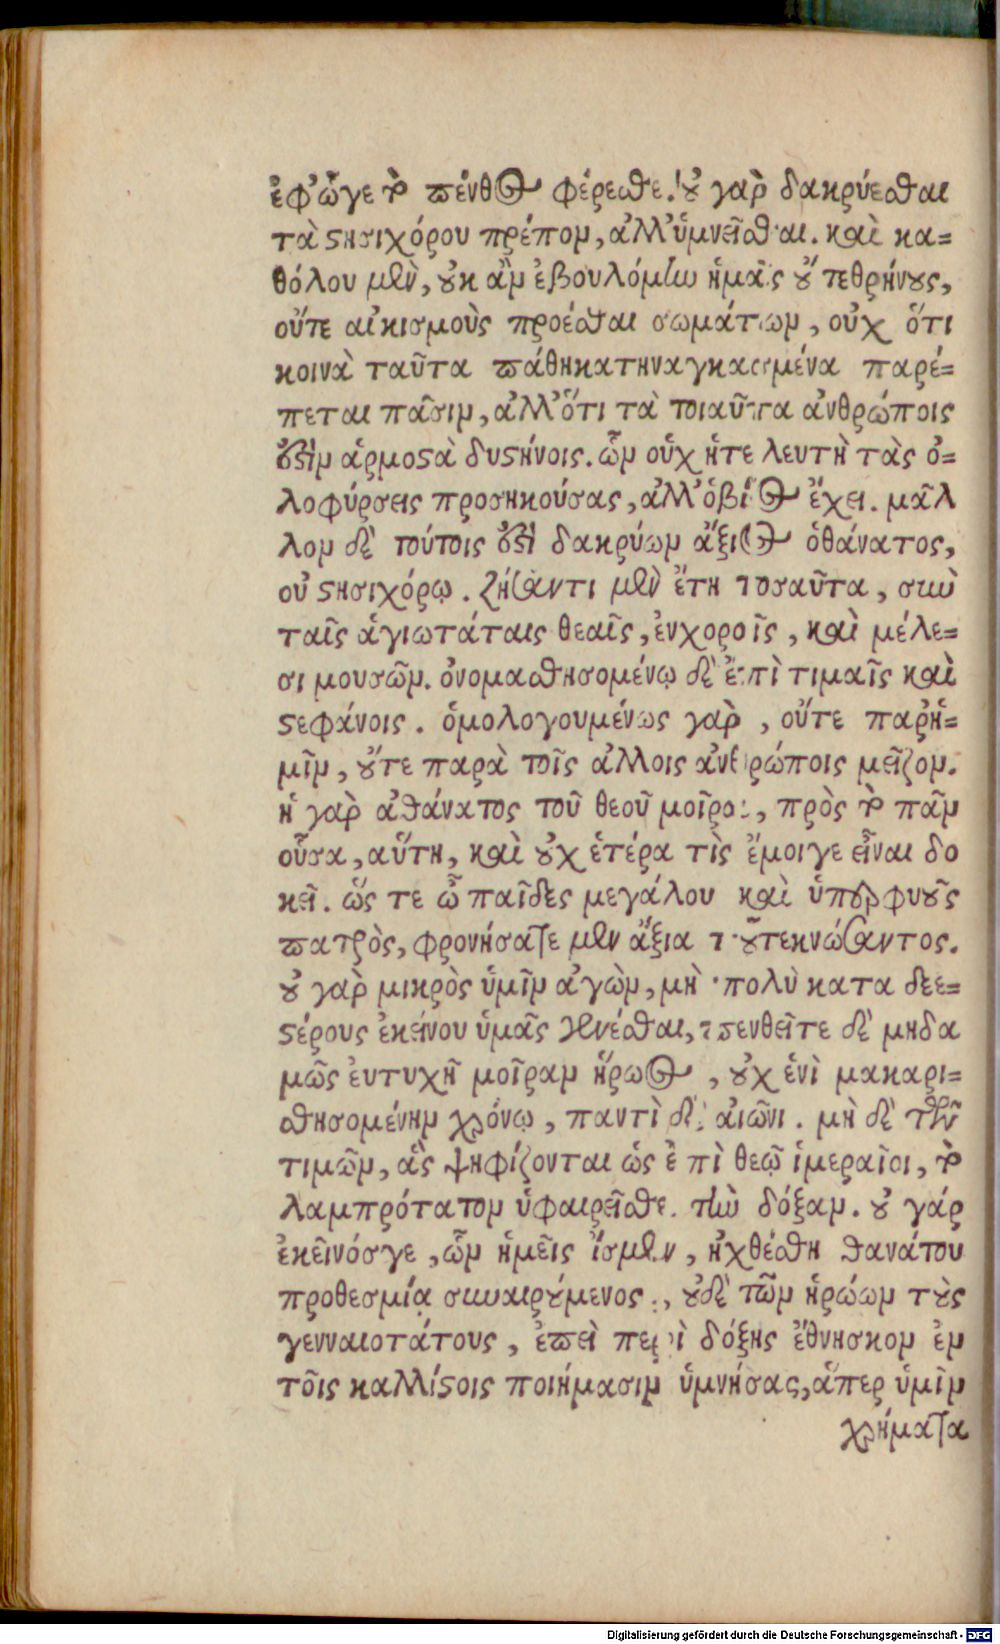 ἐφ' ὧγε τὸ πένθος φέρεσθε. οὐ γὰρ δακρύεσθαι
τὰ στησιχόρου πρέπον, ἀλλ' ὑμνεῖσθαι. καὶ κα=
θόλου μὲν, οὐκ ἂν ἐβουλόμην ἡμᾶς οὔτε θρήνους,
οὔτε αἰκισμοὺς προέσθαι σωμάτων, οὐχ ὅτι
κοινὰ ταῦτα πάθη κατηναγκασμένα παρέ=
πεται πᾶσιν, ἀλλ' ὅτι τὰ τοιαῦτα ἀνθρώποις
ἐστὶν ἁρμοστὰ δυστήνοις. ὧν οὐχ ἡτε λευτὴ τὰς ὀ=
λοφύρσεις προσηκούσας, ἀλλ' ὁβίος ἔχει. μᾶλ
λον δὲ τούτοις ἐστὶ δακρύων ἄξιος ὁθάνατος,
οὐ στησιχόρῳ. ζήσαντι μὲν ἔτη τοσαῦτα, σὺν
ταῖς ἁγιωτάταις θεαῖς, ἐνχοροῖς, καὶ μέλε=
σι μουσῶν. ὀνομασθησομένῳ δὲ ἐπὶ τιμαῖς καὶ
στεφάνοις. ὁμολογουμένως γὰρ, οὔτε παρἡ=
μῖν, οὔτε παρὰ τοῖς ἄλλοις ἀνθρώποις μεῖζον.
ἡ γὰρ ἀθάνατος τοῦ θεοῦ μοῖρα, πρὸς τὸ πᾶν
οὖσα, αὕτη, καὶ οὐχ ἑτέρα τὶς ἔμοιγε εἶναι δο
κεῖ. ὥς τε ὦ παῖδες μεγάλου καὶ ὑπερφυοῦς
πατρὸς, φρονήσατε μὲν ἄξια τοῦτεκνώσαντος.
οὐ γὰρ μικρὸς ὑμῖν ἀγὼν, μὴ πολὺ κατα δεε=
στέρους ἐκείνου ὑμᾶς γενέσθαι, πενθεῖτε δὲ μηδα
μῶς ἐυτυχῆ μοῖραν ἥρωος, οὐχ ἑνὶ μακαρι=
σθησομένην χρόνῳ, παντὶ δὲ αἰῶνι. μὴ δὲ τῶν
τιμῶν, ἃς ψηφίζονται ὡς ἐπὶ θεῷ ἱμεραῖοι, τὸ
λαμπρότατον ὑφαιρεῖσθε. τὴν δόξαν. οὐ γάρ
ἐκεῖνόσγε, ὧν ἡμεῖς ἴσμεν, ἠχθέσθη θανάτου
προθεσμίᾳ συναιρούμενος, οὐδὲ τῶν ἡρώων τοὺς
γενναιοτάτους, ἐπεὶ περὶ δόξης ἔθνησκον ἐν
τοῖς καλλίστοις ποιήμασιν ὑμνήσας, ἅπερ ὑμῖν
χρήματα
Digitalisierung gefördert durch die Deutsche Forschungsgemeinschaft - DFG